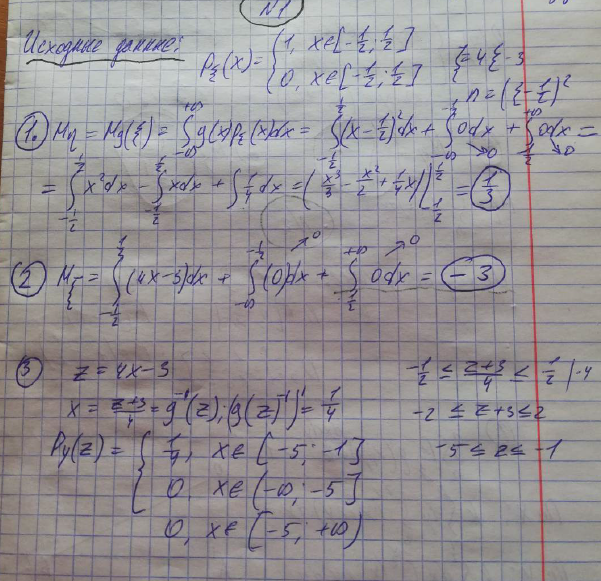 №1
Исходные данные: P_ξ(x) = { 1, x∈[-1/2; 1/2]
0, x∈[-1/2; 1/2]
ζ = 4ξ - 3
η = (ξ - 1/2)²
1. Mη = Mg(ξ) = ∫_{-∞}^{+∞} g(x)P_ξ(x)dx = ∫_{-1/2}^{1/2} (x - 1/2)² dx + ∫_{-∞}^{-1/2} 0dx + ∫_{1/2}^{+∞} 0dx =
→0 →0
= ∫_{-1/2}^{1/2} x² dx - ∫_{-1/2}^{1/2} x dx + ∫ 1/4 dx = (x³/3 - x²/2 + 1/4 x) |_{1/2}^{1/2} = 1/3
2 Mζ = ∫_{-1/2}^{1/2} (4x-3)dx + ∫_{-∞}^{-1/2} (0)dx + ∫_{-1/2}^{+∞} 0dx = -3
→0 →0
3 z = 4x-3
x = (z+3)/4 = g⁻¹(z); (g(z)⁻¹)' = 1/4
Py(z) = { 1/4, x∈[-5; -1]
0, x∈(-∞; -5]
0, x∈(-5; +∞)
-1/2 ≤ (z+3)/4 ≤ 1/2 | ·4
-2 ≤ z+3 ≤ 2
-5 ≤ z ≤ -1